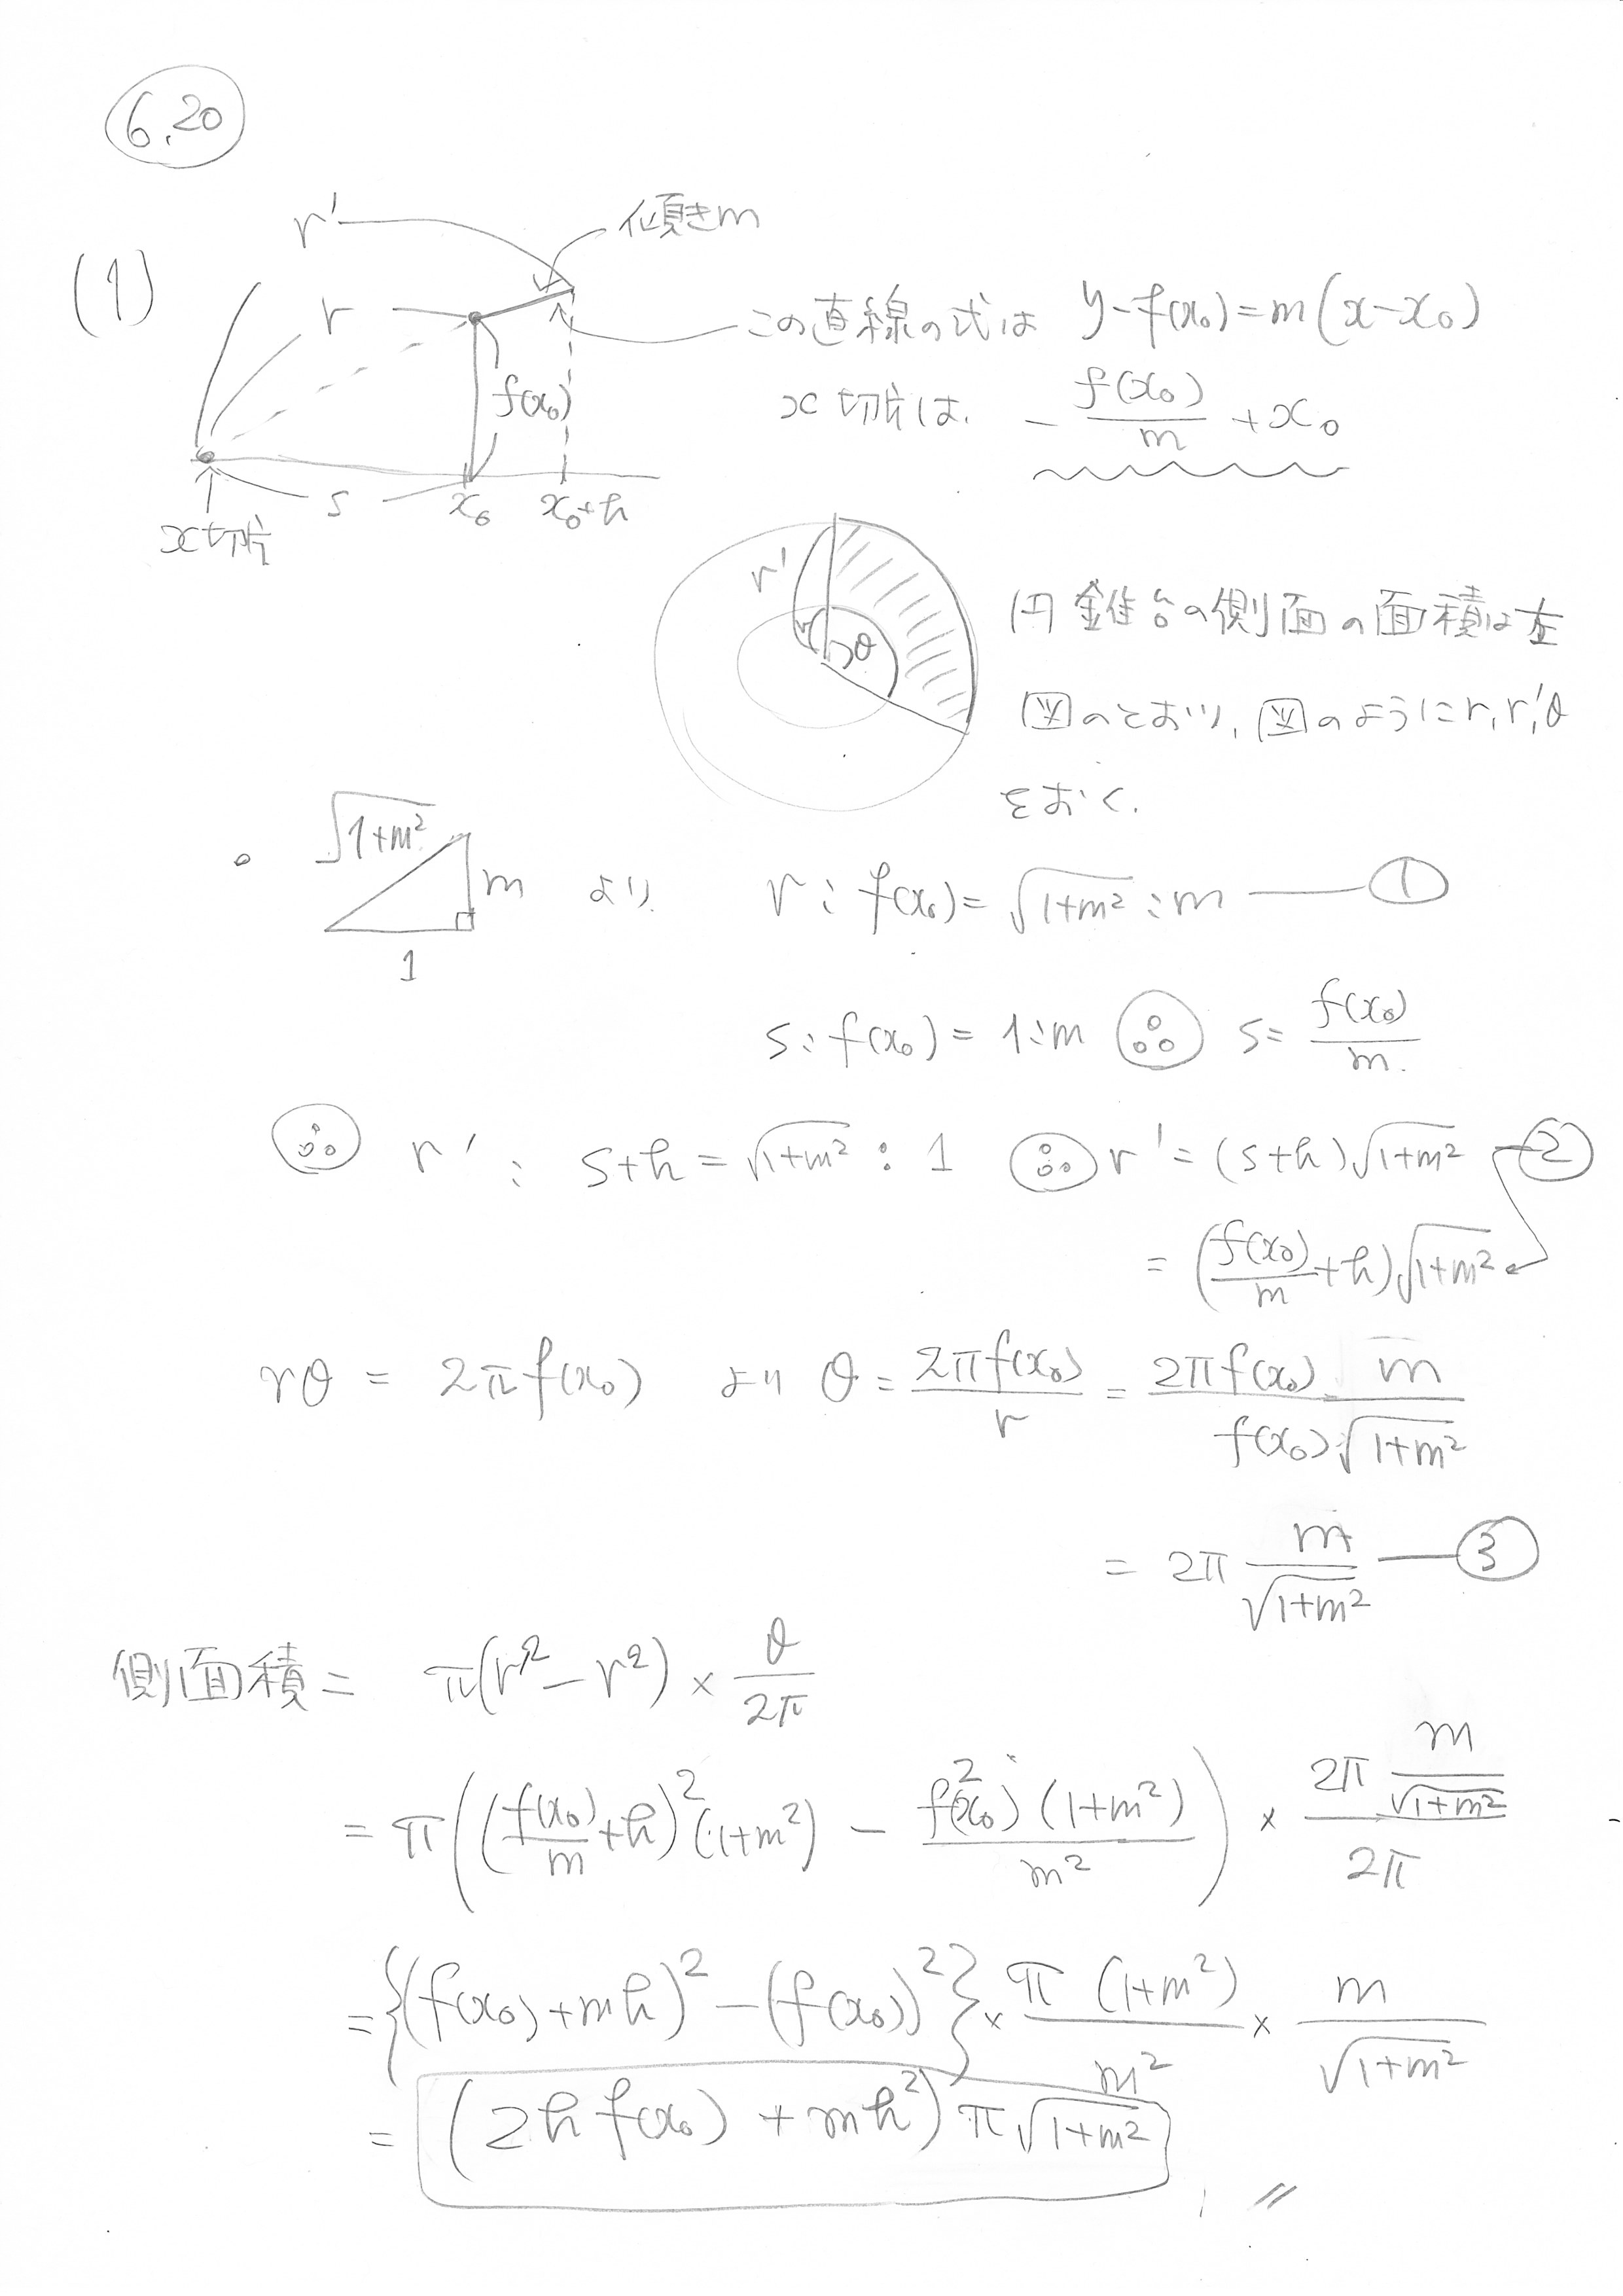 6.20
(1)
r'
傾きm
r
この直線の式は y-f(x₀)=m(x-x₀)
f(x₀)
x切片は. -f(x₀)/m +x₀
s
x₀
x₀+h
x切片
r'
r
θ
円錐台の側面の面積は左
図のとおり, 図のようにr,r',θ
をおく.
√(1+m²)
m
1
より r:f(x₀)=√(1+m²):m ― ①
s:f(x₀)=1:m ∴ s=f(x₀)/m.
∴ r':s+h=√(1+m²):1 ∴ r'=(s+h)√(1+m²) ― ②
=(f(x₀)/m+h)√(1+m²)
rθ = 2πf(x₀) より θ=2πf(x₀)/r=2πf(x₀)·m/(f(x₀)√(1+m²))
=2π m/√(1+m²) ― ③
側面積= π(r'²-r²)×θ/2π
=π((f(x₀)/m+h)²(1+m²) - f²(x₀)(1+m²)/m²)×(2π m/√(1+m²))/2π
={(f(x₀)+mh)²-(f(x₀))²}×π(1+m²)/m²×m/√(1+m²)
=(2hf(x₀)+mh²)π√(1+m²)